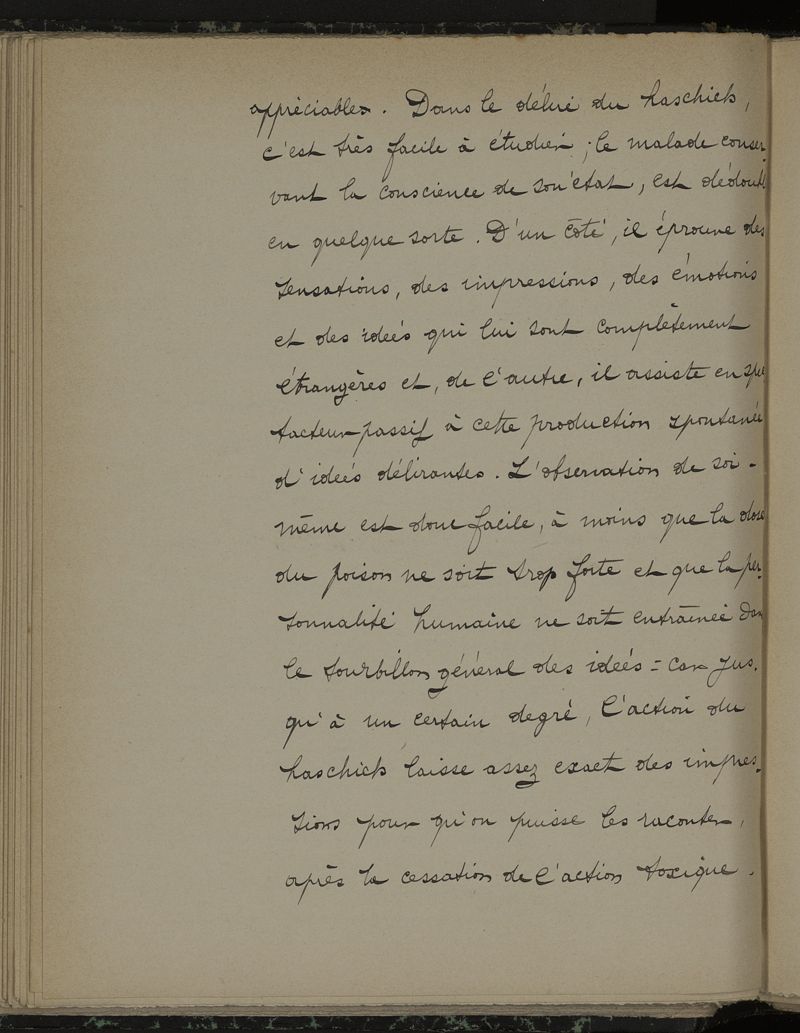 appréciables. Dans le délire du haschich,
c'est très facile à étudier; le malade conser-
vant la conscience de son état, est dédoubl
en quelque sorte. D'un côté, il éprouve des
sensations, des impressions, des émotions
et des idées qui lui sont complètement
étrangères et, de l'autre, il assiste en spec
tacteur passif à cette production spontanée
d'idées délirantes. L'observation de soi-
même est donc facile, à moins que la dose
du poison ne soit trop forte et que la per-
sonnalité humaine ne soit entraînée dans
le tourbillon général des idées = car jus-
qu'à un certain degré, l'action du
haschich laisse assez exact des impres-
sions pour qu'on puisse les raconter,
après la cessation de l'action toxique.